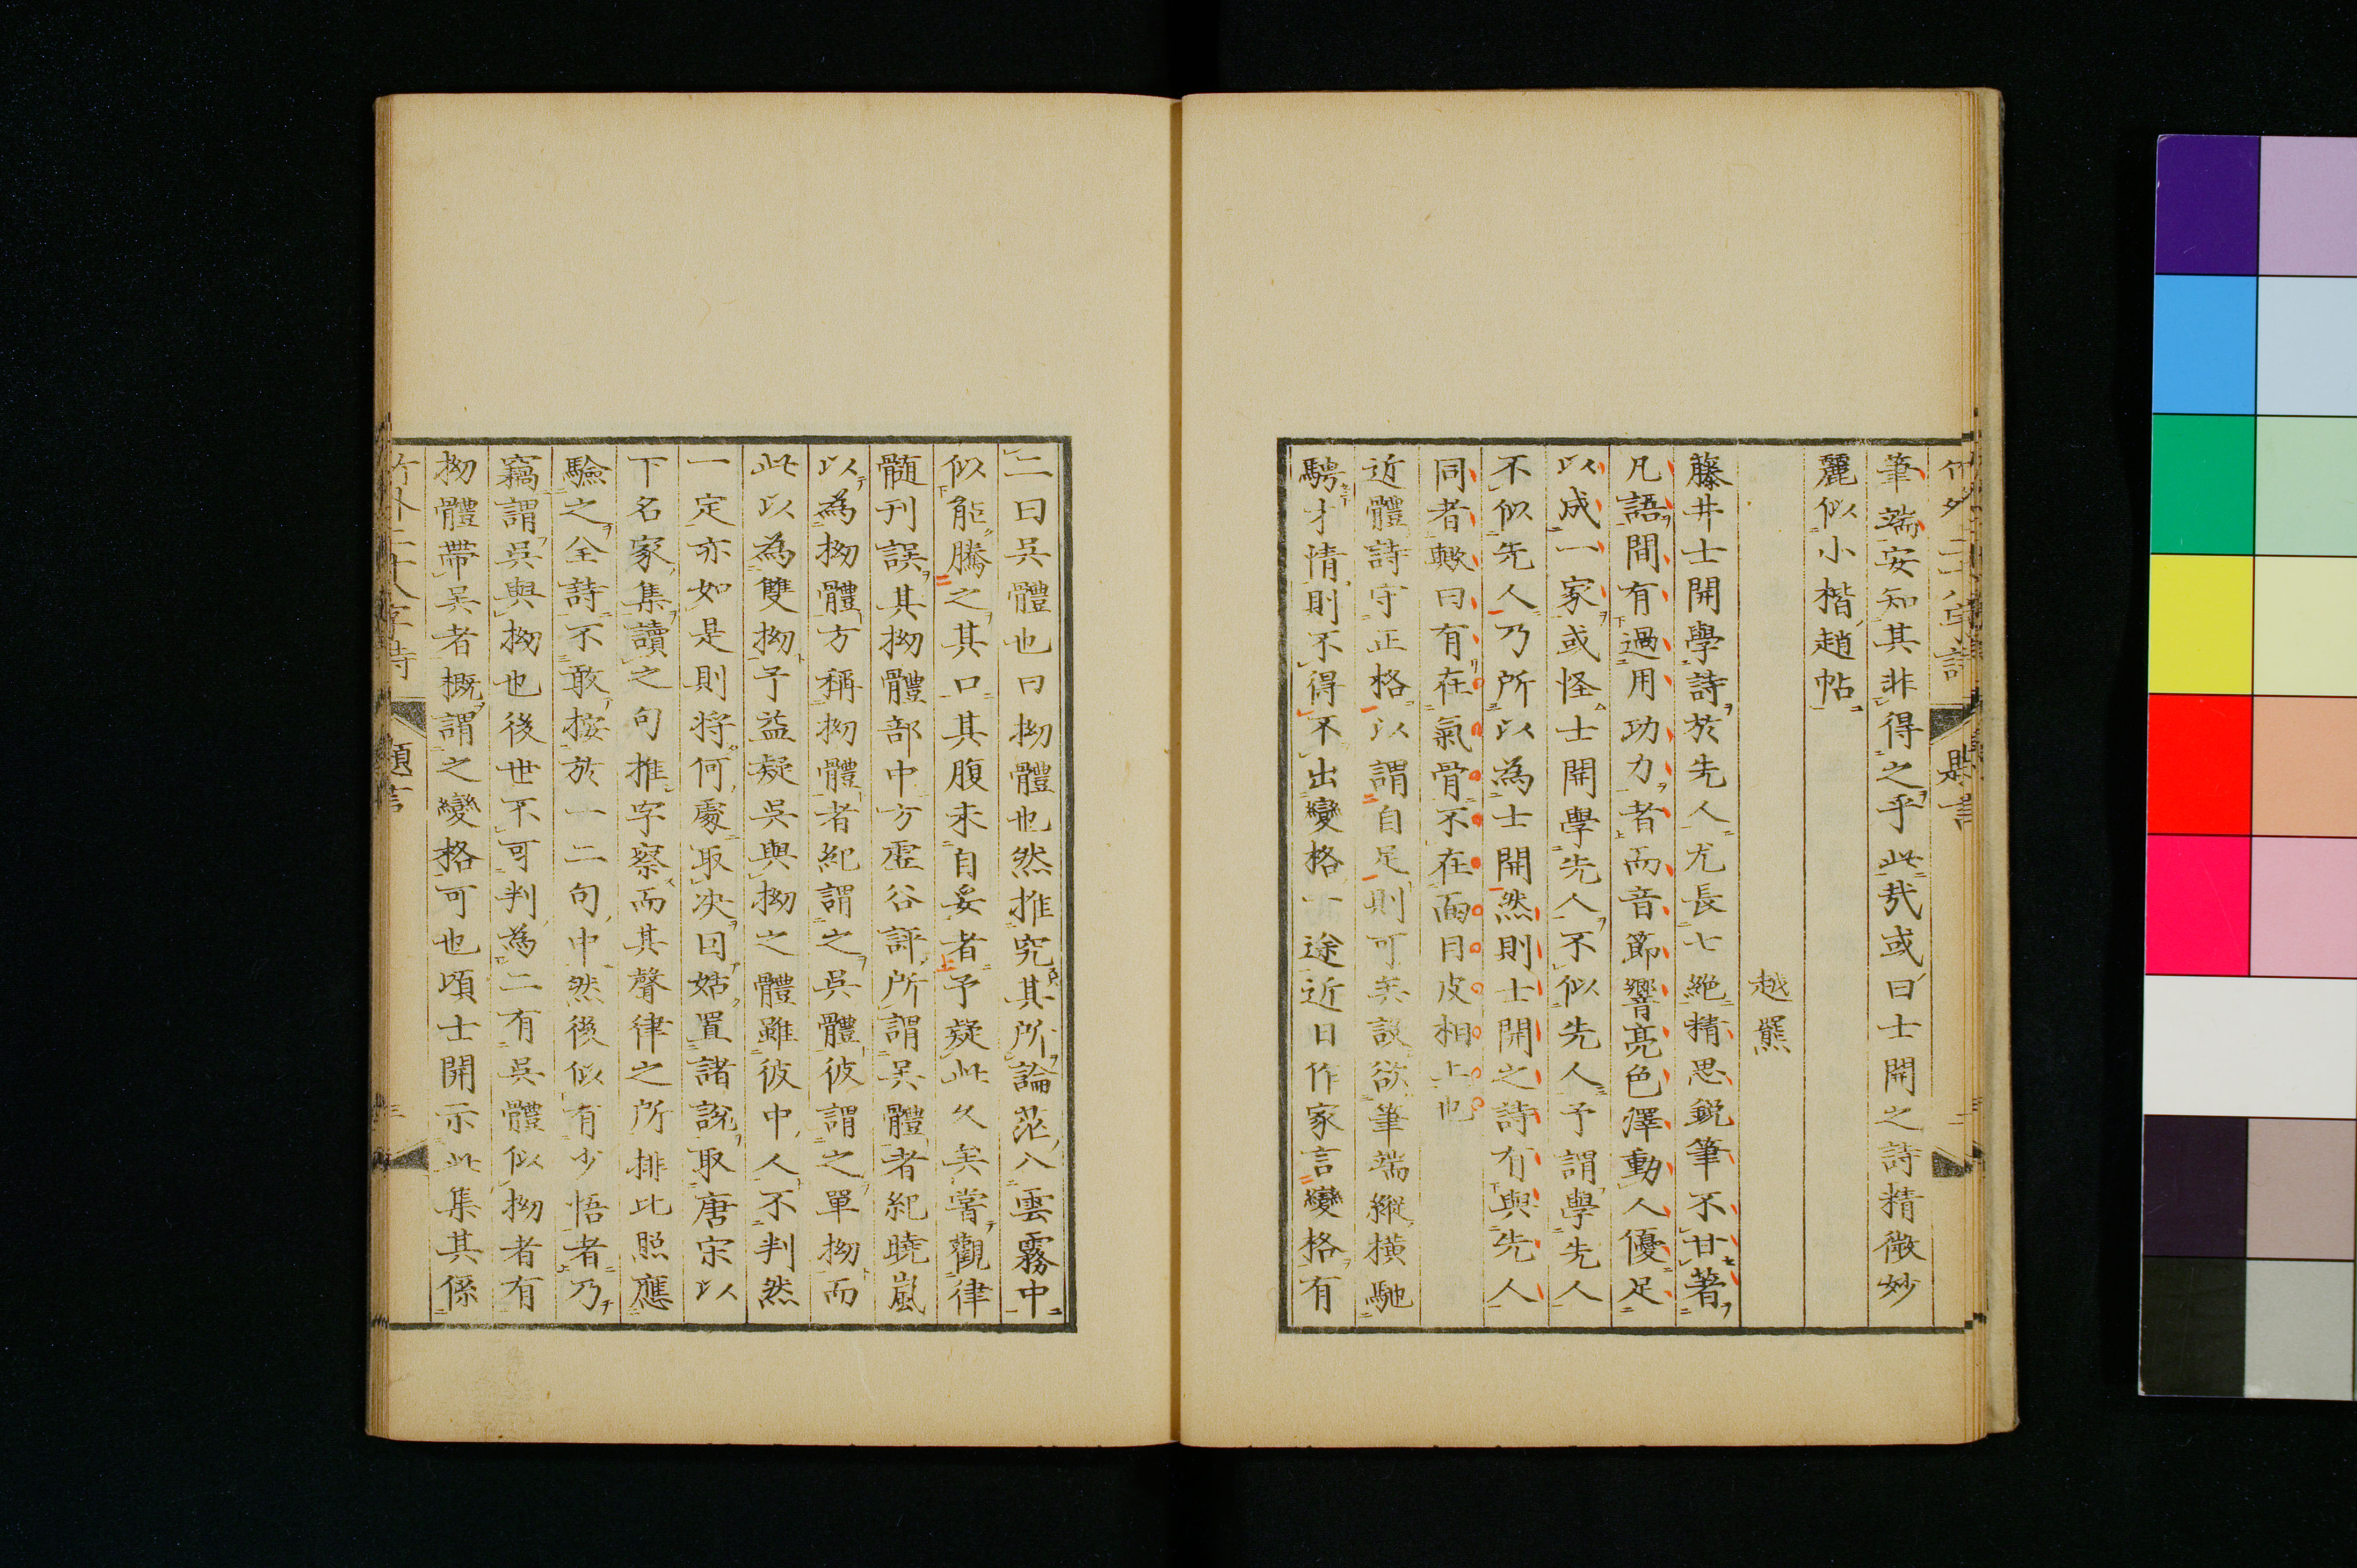 筆端安知其非得之乎此哉或曰士開之詩精微妙
麗似小楷趙帖
越羆
藤井士開學詩於先人尤長七絶精思鋭筆不甘著
凡語間有過用功力者而音節響亮色澤動人優足
以成一家或怪士開學先人不似先人予謂學先人
不似先人乃所以為士開然則士開之詩有與先人
同者歟曰有在氣骨不在面目皮相上也
近體詩守正格以謂自足則可矣設欲筆端縱橫馳
騁才情則不得不出變格一途近日作家言變格有
二曰吳體也曰拗體也然推究其所論茫八雲霧中
似能騰之其口其腹未自妥者予疑此久矣嘗觀律
髓刊誤其拗體部中方虛谷評所謂吴體者紀曉嵐
以為拗體方稱拗體者紀謂之吳體彼謂之單拗而
此以為雙拗予益疑吳與拗之體雖彼中人不判然
一定亦如是則將何處取决因姑置諸説取唐宋以
下名家集讀之句推字察而其聲律之所排比照應
驗之全詩不敢按於一二句中然後似有少悟者乃
竊謂吳與拗也後世不可判為二有吳體似拗者有
拗體帶吴者概謂之變格可也頃士開示此集其係
竹外二十八字詩
題言
三